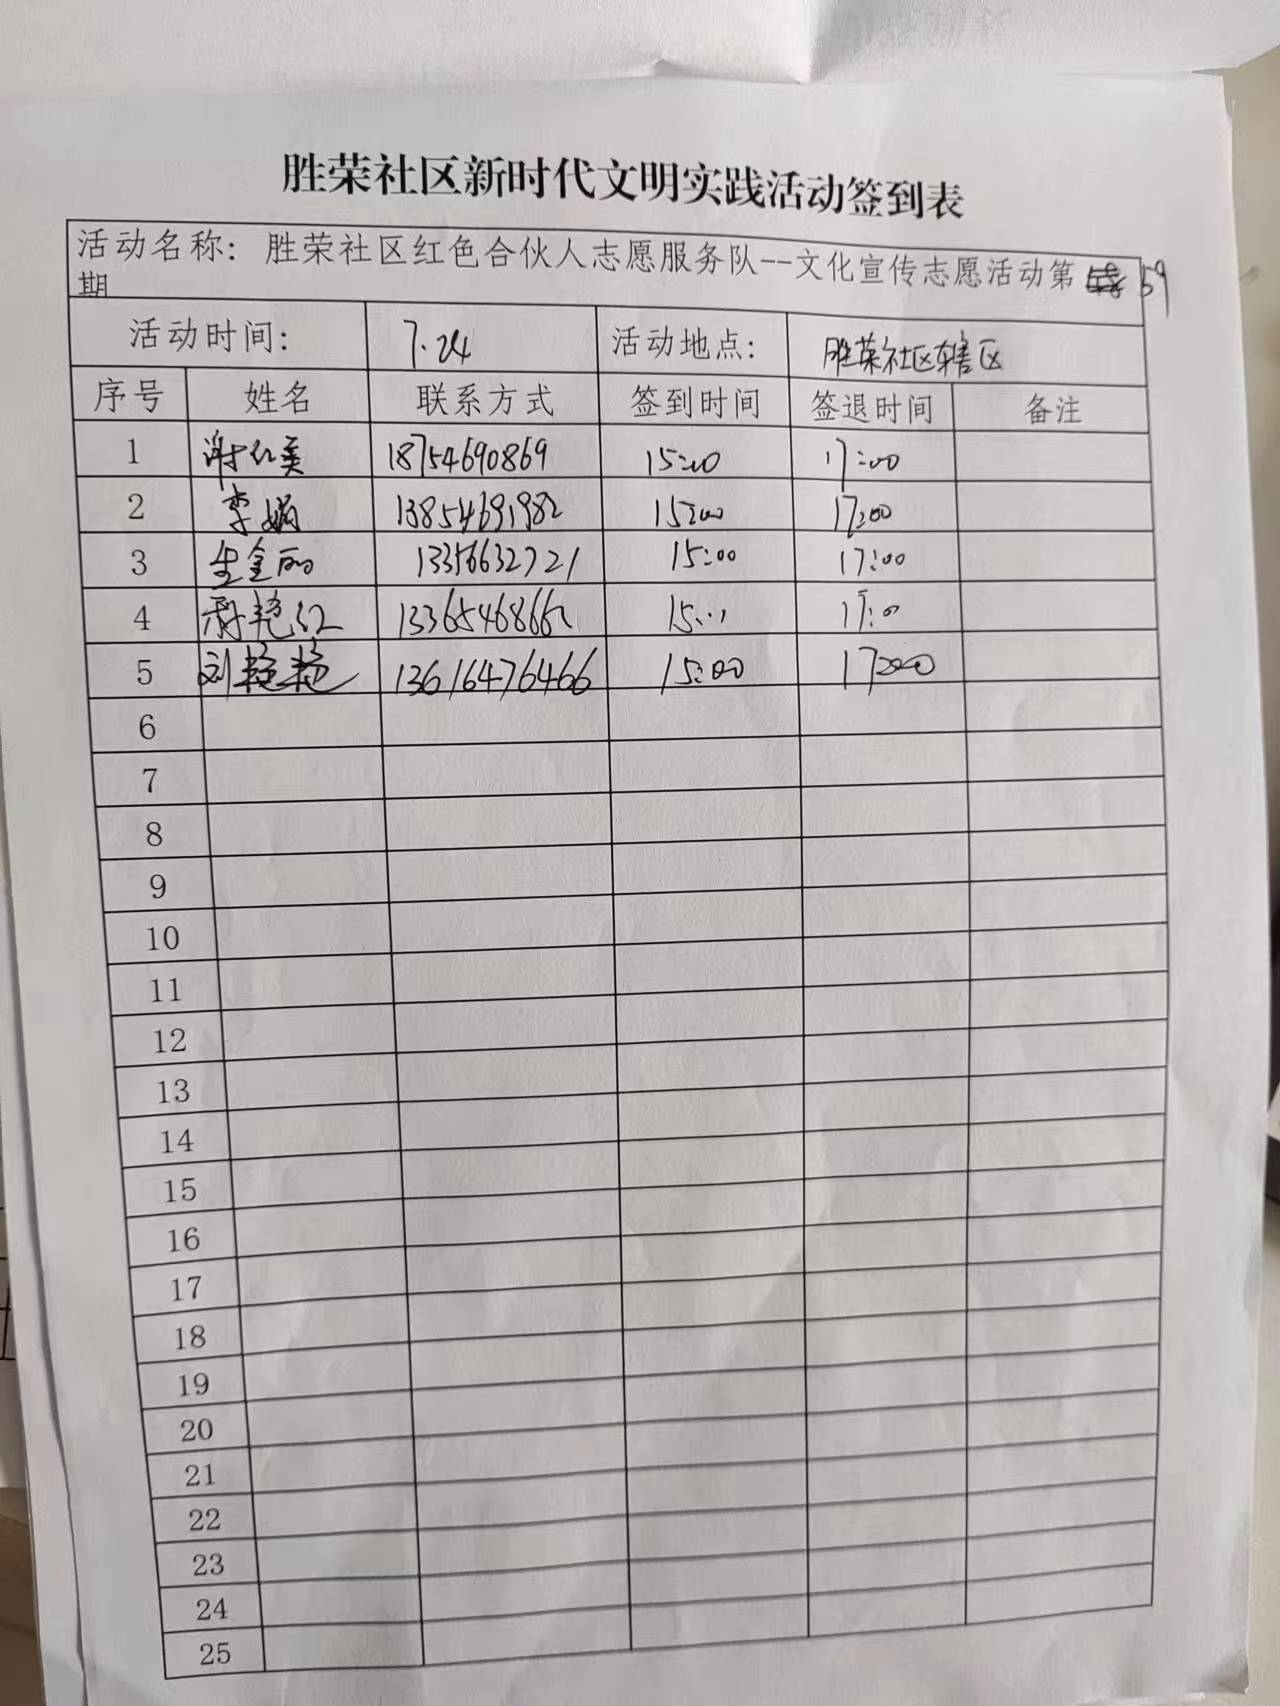 胜荣社区新时代文明实践活动签到表
活动名称：胜荣社区红色合伙人志愿服务队--文化宣传志愿活动第 59
期
活动时间： 7.24 活动地点： 胜荣社区辖区
序号 姓名 联系方式 签到时间 签退时间 备注
1 谢红美 18754690869 15:00 17:00
2 李娟 13854691982 15:00 17:00
3 生金丽 13356632721 15:00 17:00
4 艳红 15:00 17:00
5 刘艳艳 13616476466 15:00 17:00
6
7
8
9
10
11
12
13
14
15
16
17
18
19
20
21
22
23
24
25